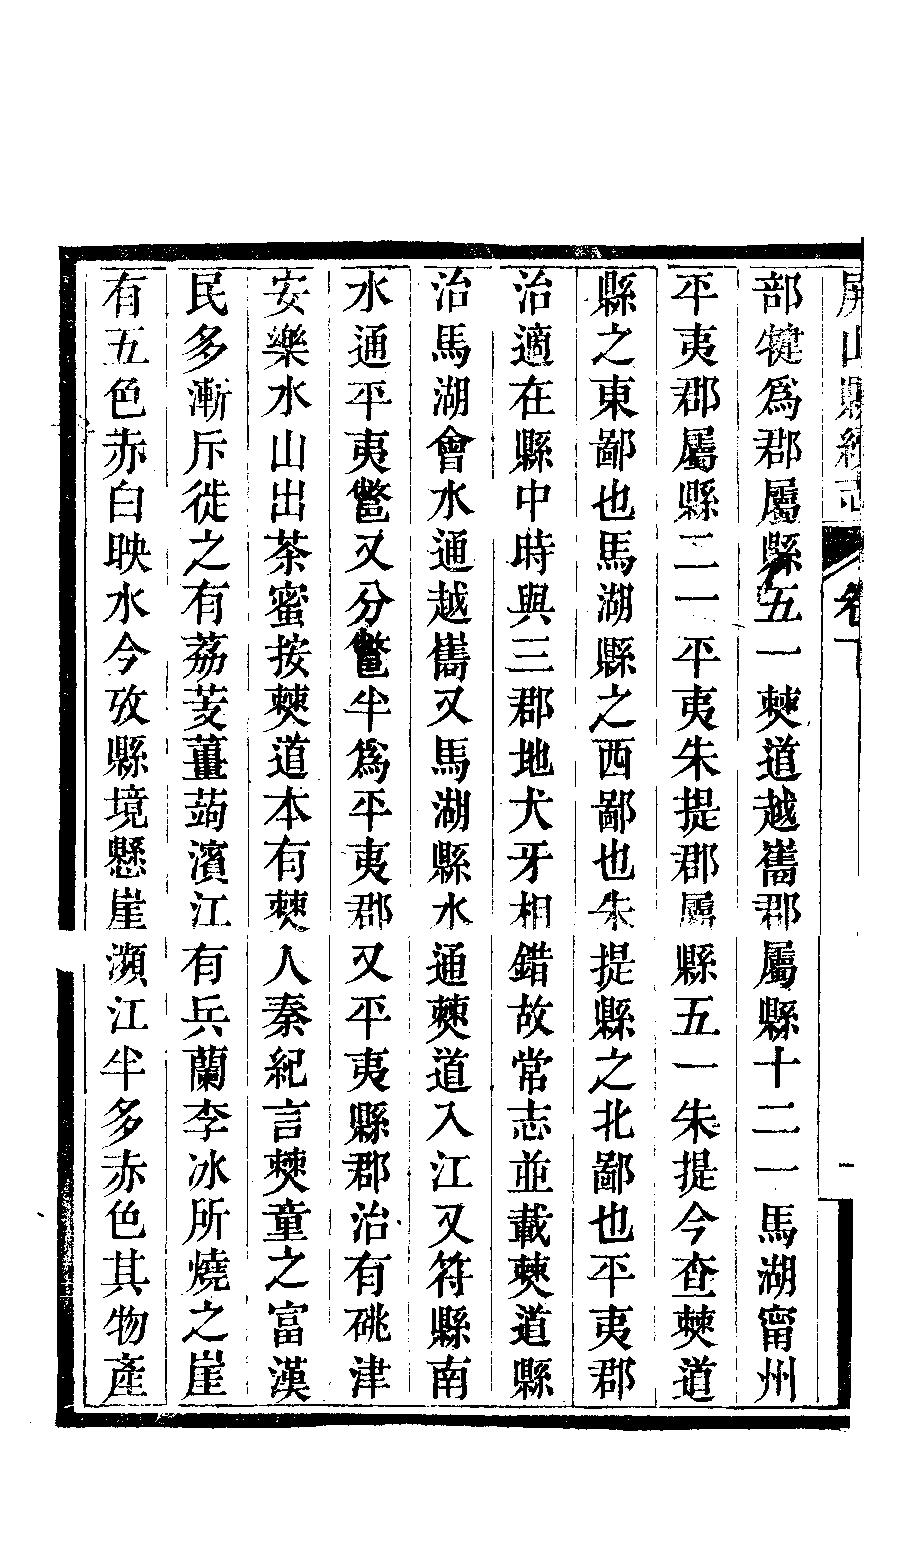 屏山縣續志 卷下 一
部犍爲郡屬縣五一僰道越嶲郡屬縣十二一馬湖甯州
平夷郡屬縣二一平夷朱提郡屬縣五一朱提今查僰道
縣之東鄙也馬湖縣之西鄙也朱提縣之北鄙也平夷郡
治適在縣中時與三郡地犬牙相錯故常志並載僰道縣
治馬湖會水通越嶲又馬湖縣水通僰道入江又符縣南
水通平夷鄨又分鄨半爲平夷郡又平夷縣郡治有䂪津
安樂水山出茶蜜按僰道本有僰人秦紀言僰童之富漢
民多漸斥徙之有荔芰薑蒟濱江有兵蘭李冰所燒之崖
有五色赤白映水今攷縣境懸崖瀕江半多赤色其物產